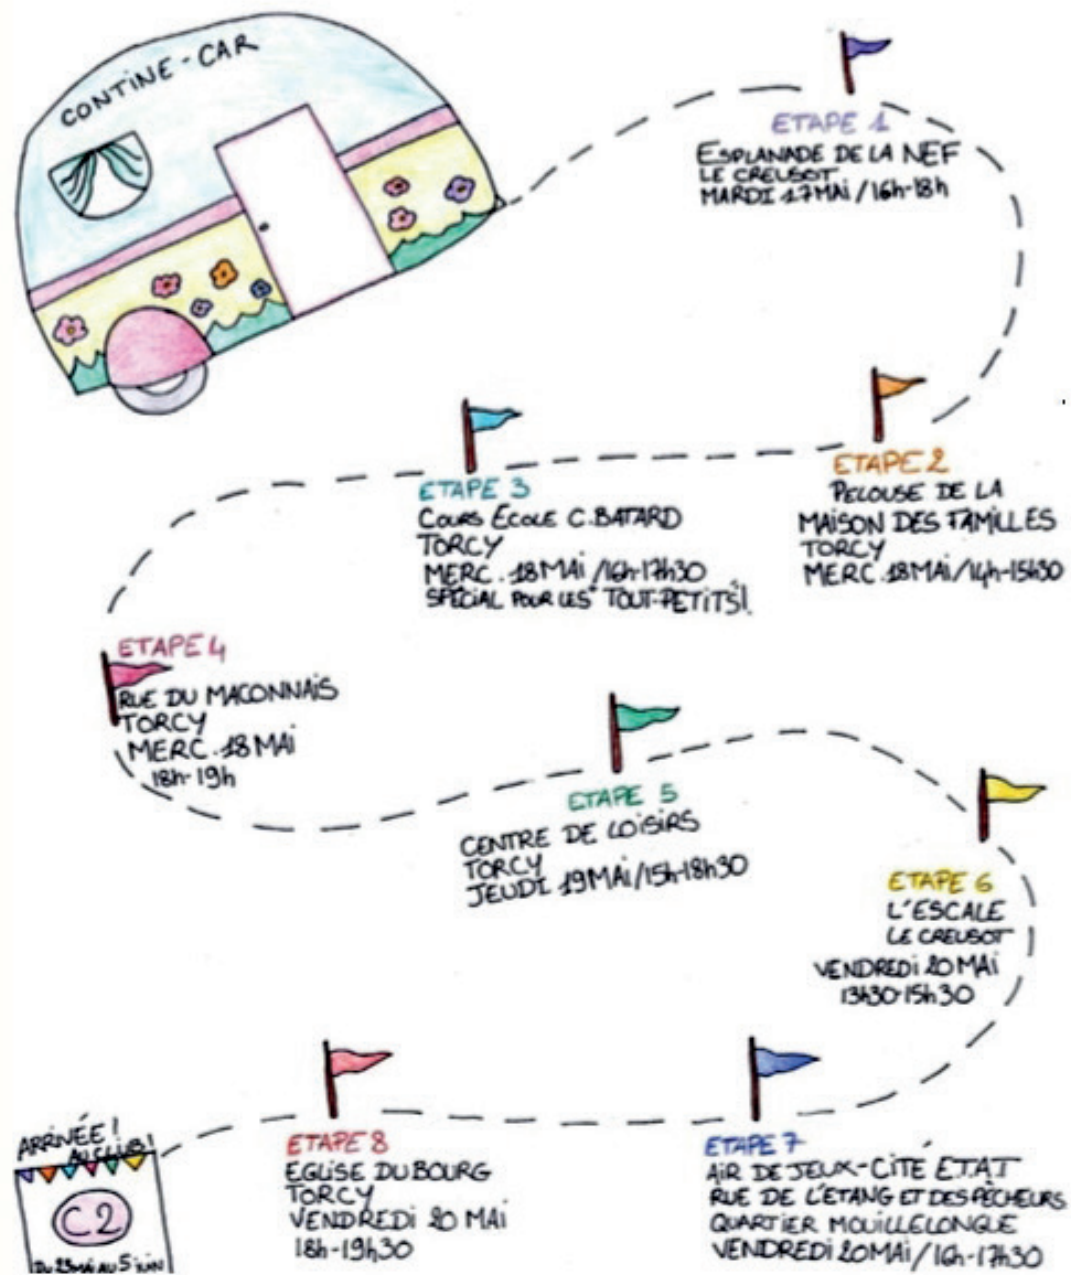 CONTINE-CAR
ETAPE 1
ESPLANADE DE LA NEF
LE CREUSOT
MARDI 17 MAI / 16h-18h
ETAPE 2
PELOUSE DE LA
MAISON DES FAMILLES
TORCY
MERC. 18 MAI / 14h-15h30
ETAPE 3
COURS ECOLE C. BATARD
TORCY
MERC. 18 MAI / 16h-17h30
SPÉCIAL POUR LES "TOUT-PETITS"!
ETAPE 4
RUE DU MACONNAIS
TORCY
MERC. 18 MAI
18h-19h
ETAPE 5
CENTRE DE LOISIRS
TORCY
JEUDI 19 MAI / 15h-18h30
ETAPE 6
L'ESCALE
LE CREUSOT
VENDREDI 20 MAI
13h30-15h30
ETAPE 7
AIR DE JEUX-CITÉ ETAT
RUE DE L'ETANG ET DES PÊCHEURS
QUARTIER MOUILLELONGUE
VENDREDI 20 MAI / 16h-17h30
ETAPE 8
EGLISE DU BOURG
TORCY
VENDREDI 20 MAI
18h-19h30
ARRIVÉE!
AU CLUB!
C2
DU 23 MAI AU 5 JUIN